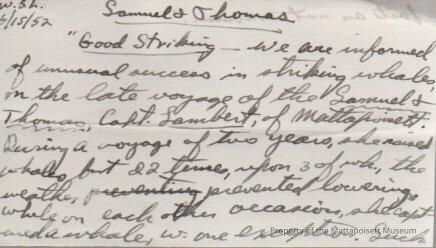 W.S.L.
6/15/52
Samuel & Thomas
"Good Striking — We are informed
of unusual success in striking whales,
in the late voyage of the Samuel &
Thomas, Capt. Lambert of Mattapoisett.
During a voyage of two years, she raised
whales, but 22 times, upon 3 of wh., the
weather, preventing prevented lowering,
while on each other occasion, she capt
ured a whale, w. one
Property of the Mattapoisett Museum